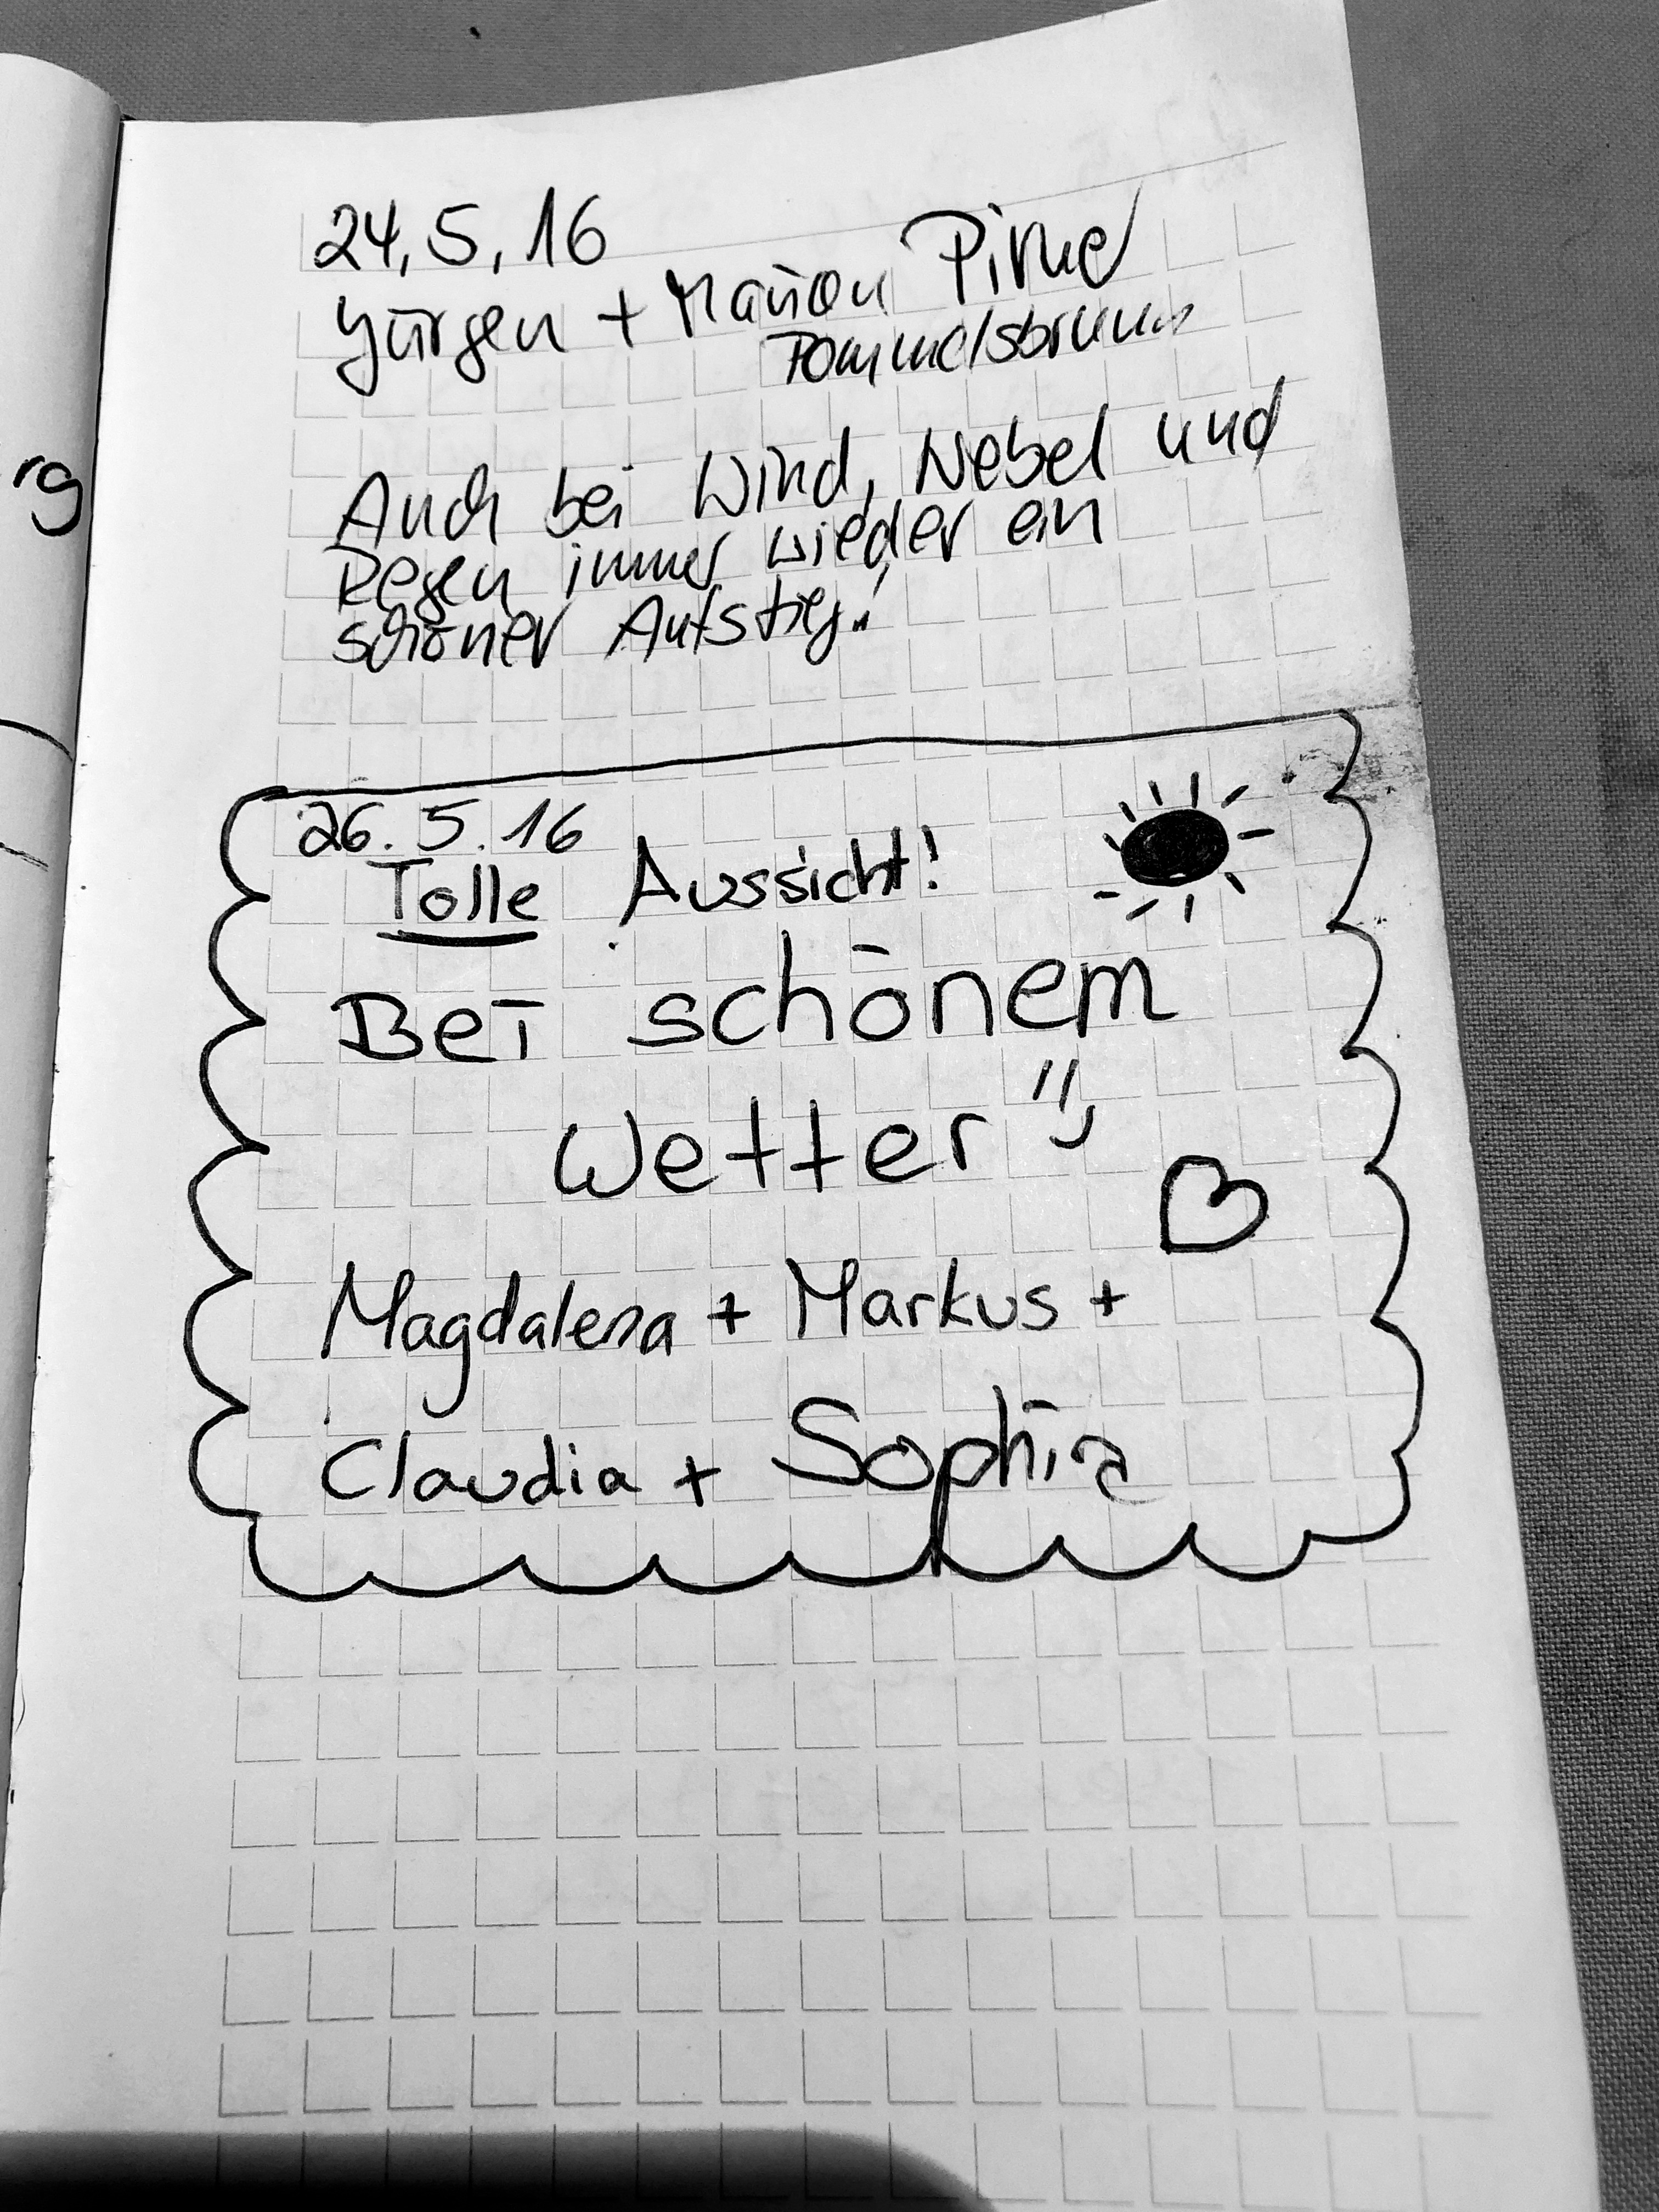 rg
24.5.16
Jürgen + Marion
Pommelsbrunn
Auch bei Wind, Nebel und
Regen immer wieder ein
schöner Aufstieg!
26.5.16
Tolle Aussicht!
Bei schönem
Wetter
Magdalena + Markus +
Claudia + Sophia